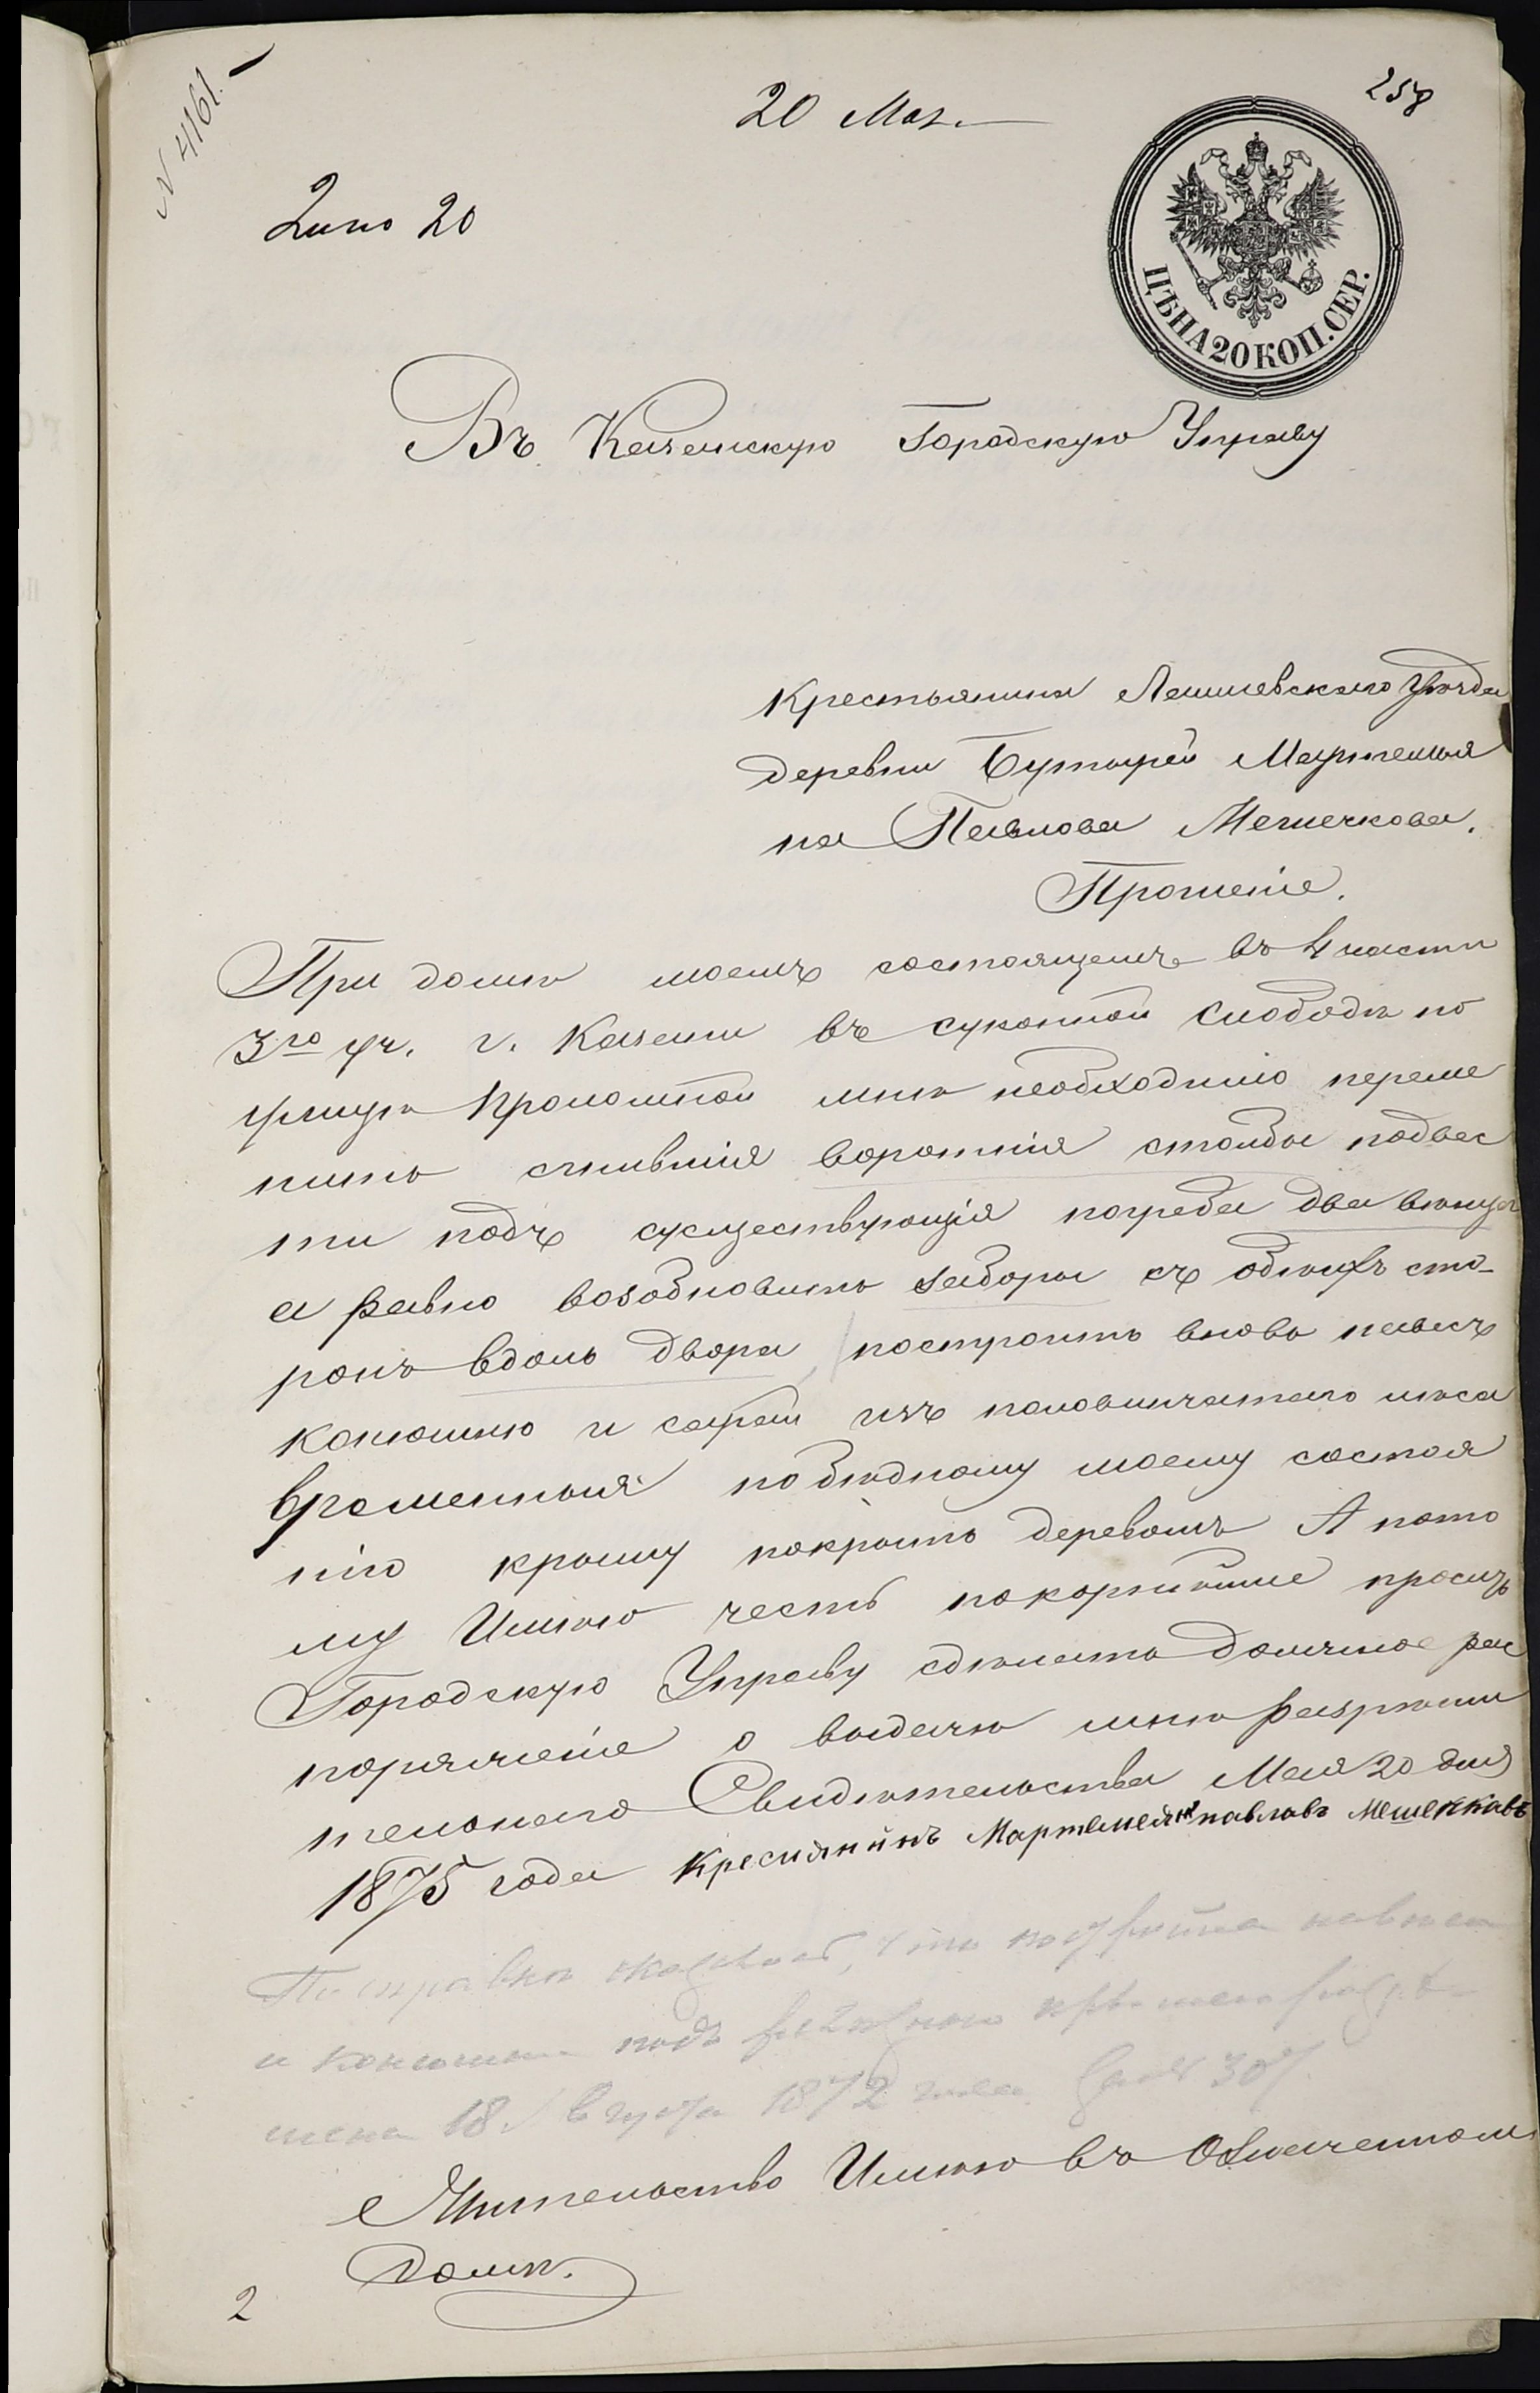 N 4161.
20 Мая.
258
20
ЦѢНА 20 КОП. СЕР.
Въ Казанскую Городскую Управу
Крестьянина Лаишевскаго Уѣзда
деревни Бутырей Мартемья
на Павлова Мешечкова.
Прошеніе.
При домѣ моемъ состоящемъ въ 4 части
3го уч. г. Казани въ суконной слободѣ по
улицѣ Проломной мнѣ необходимо переме
нить сгнившія воротнія столбы подвес
ти подъ существующія погреба два венца
а равно возобновить заборы съ обоихъ сто-
ронъ вдоль двора, построить вновь навесъ
конюшню и сарай изъ половинчатаго леса
временныя по бедному моему состоя
нію крышу покрыть деревомъ А пото
му Имѣю честь покорнѣйше просить
Городскую Управу сдѣлать должное рас
поряженіе о выдачѣ мнѣ разреши
тельнаго Свидѣтельства Мая 20 дня
1875 года Кресиянинъ Мартемеянъ павлавъ Мешекковъ
По справкѣ оказалось, что постройка навеса
и конюшни подъ крышею разрѣ-
шена 18 Августа 1872 года
Жительство Имѣю въ Означенном
домѣ.
2